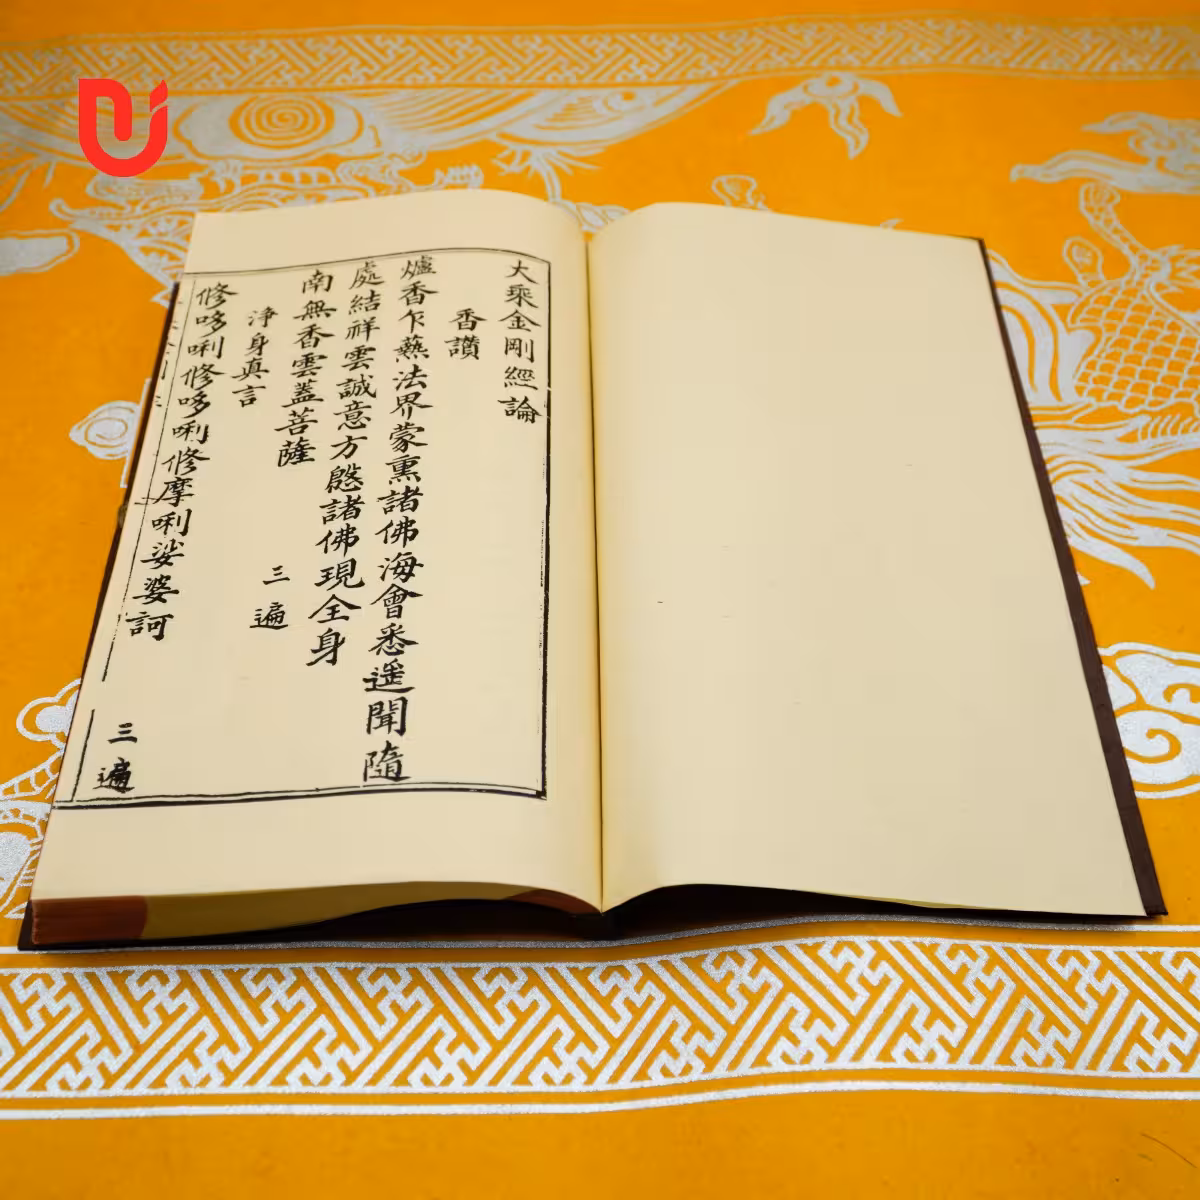 大乘金剛經論
香讚
爐香乍爇法界蒙熏諸佛海會悉遥聞隨
處結祥雲誠意方慇諸佛現全身
南無香雲蓋菩薩
三遍
淨身真言
修哆唎修哆唎修摩唎娑婆訶
三遍